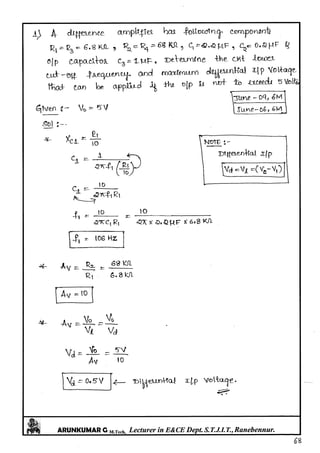 1) A difference amplifier has following components
R₁ = R₃ = 6.8 KΩ, R₂ = R₄ = 68 KΩ, C₁ = 2.2 μF, C₂ = 2.2 μF &
o/p capacitor C₃ = 1 μF. Determine the ckt lower
cut-off frequency and maximum differential i/p voltage
that can be applied if the o/p is not to exceeds 5 Volts
June - 09, 6M
June - 06, 6M
Given :- V₀ = 5V
Sol :-
* X_C1 = R₁/10
NOTE :-
Differential I/p
V_d = V_i = (V₂-V₁)
C₁ = 1/(2πf₁(R₁/10))
C₁ = 10/(2πf₁R₁)
f₁ = 10/(2πC₁R₁) = 10/(2π × 2.2 μF × 6.8 KΩ)
f₁ = 106 HZ
* A_V = R₂/R₁ = 68 KΩ/6.8 KΩ
A_V = 10
* A_V = V₀/V_i = V₀/V_d
V_d = V₀/A_V = 5V/10
V_d = 0.5 V ← Differential I/p voltage.
ARUNKUMAR G M.Tech, Lecturer in E&CE Dept. S.T.J.I.T., Ranebennur.
68